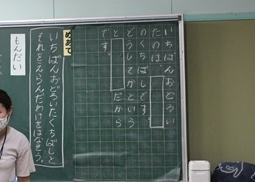 いちばんおどろい
たのは、
のくちばしです。
どうしてかという
と、
だから
です。
めあて
いちばんおどろいたくちばしと
それをえらんだわけをはなそう。
もんだい